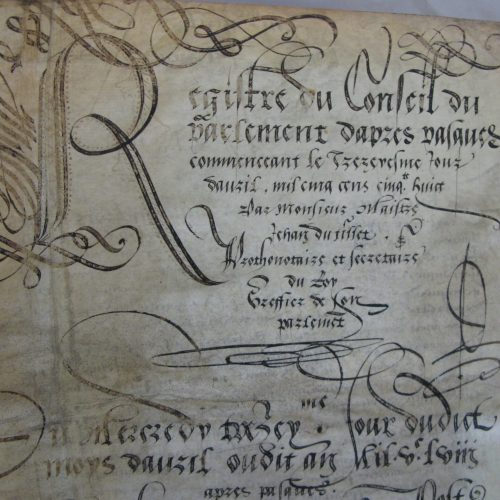 Registre du Conseil du
parlement dapres pasques
commencant le Trezeyesme jour
davril, mil cinq cens cinq.te huict
Par Monsieur Maistre
Jehan du tillet.
Prothenotaire et secretaire
du Roy
Greffier de son
parlemēt
Mercredy trezeyme jour dudict
moys davril oudit an Mil Vc lviij
apres pasques.